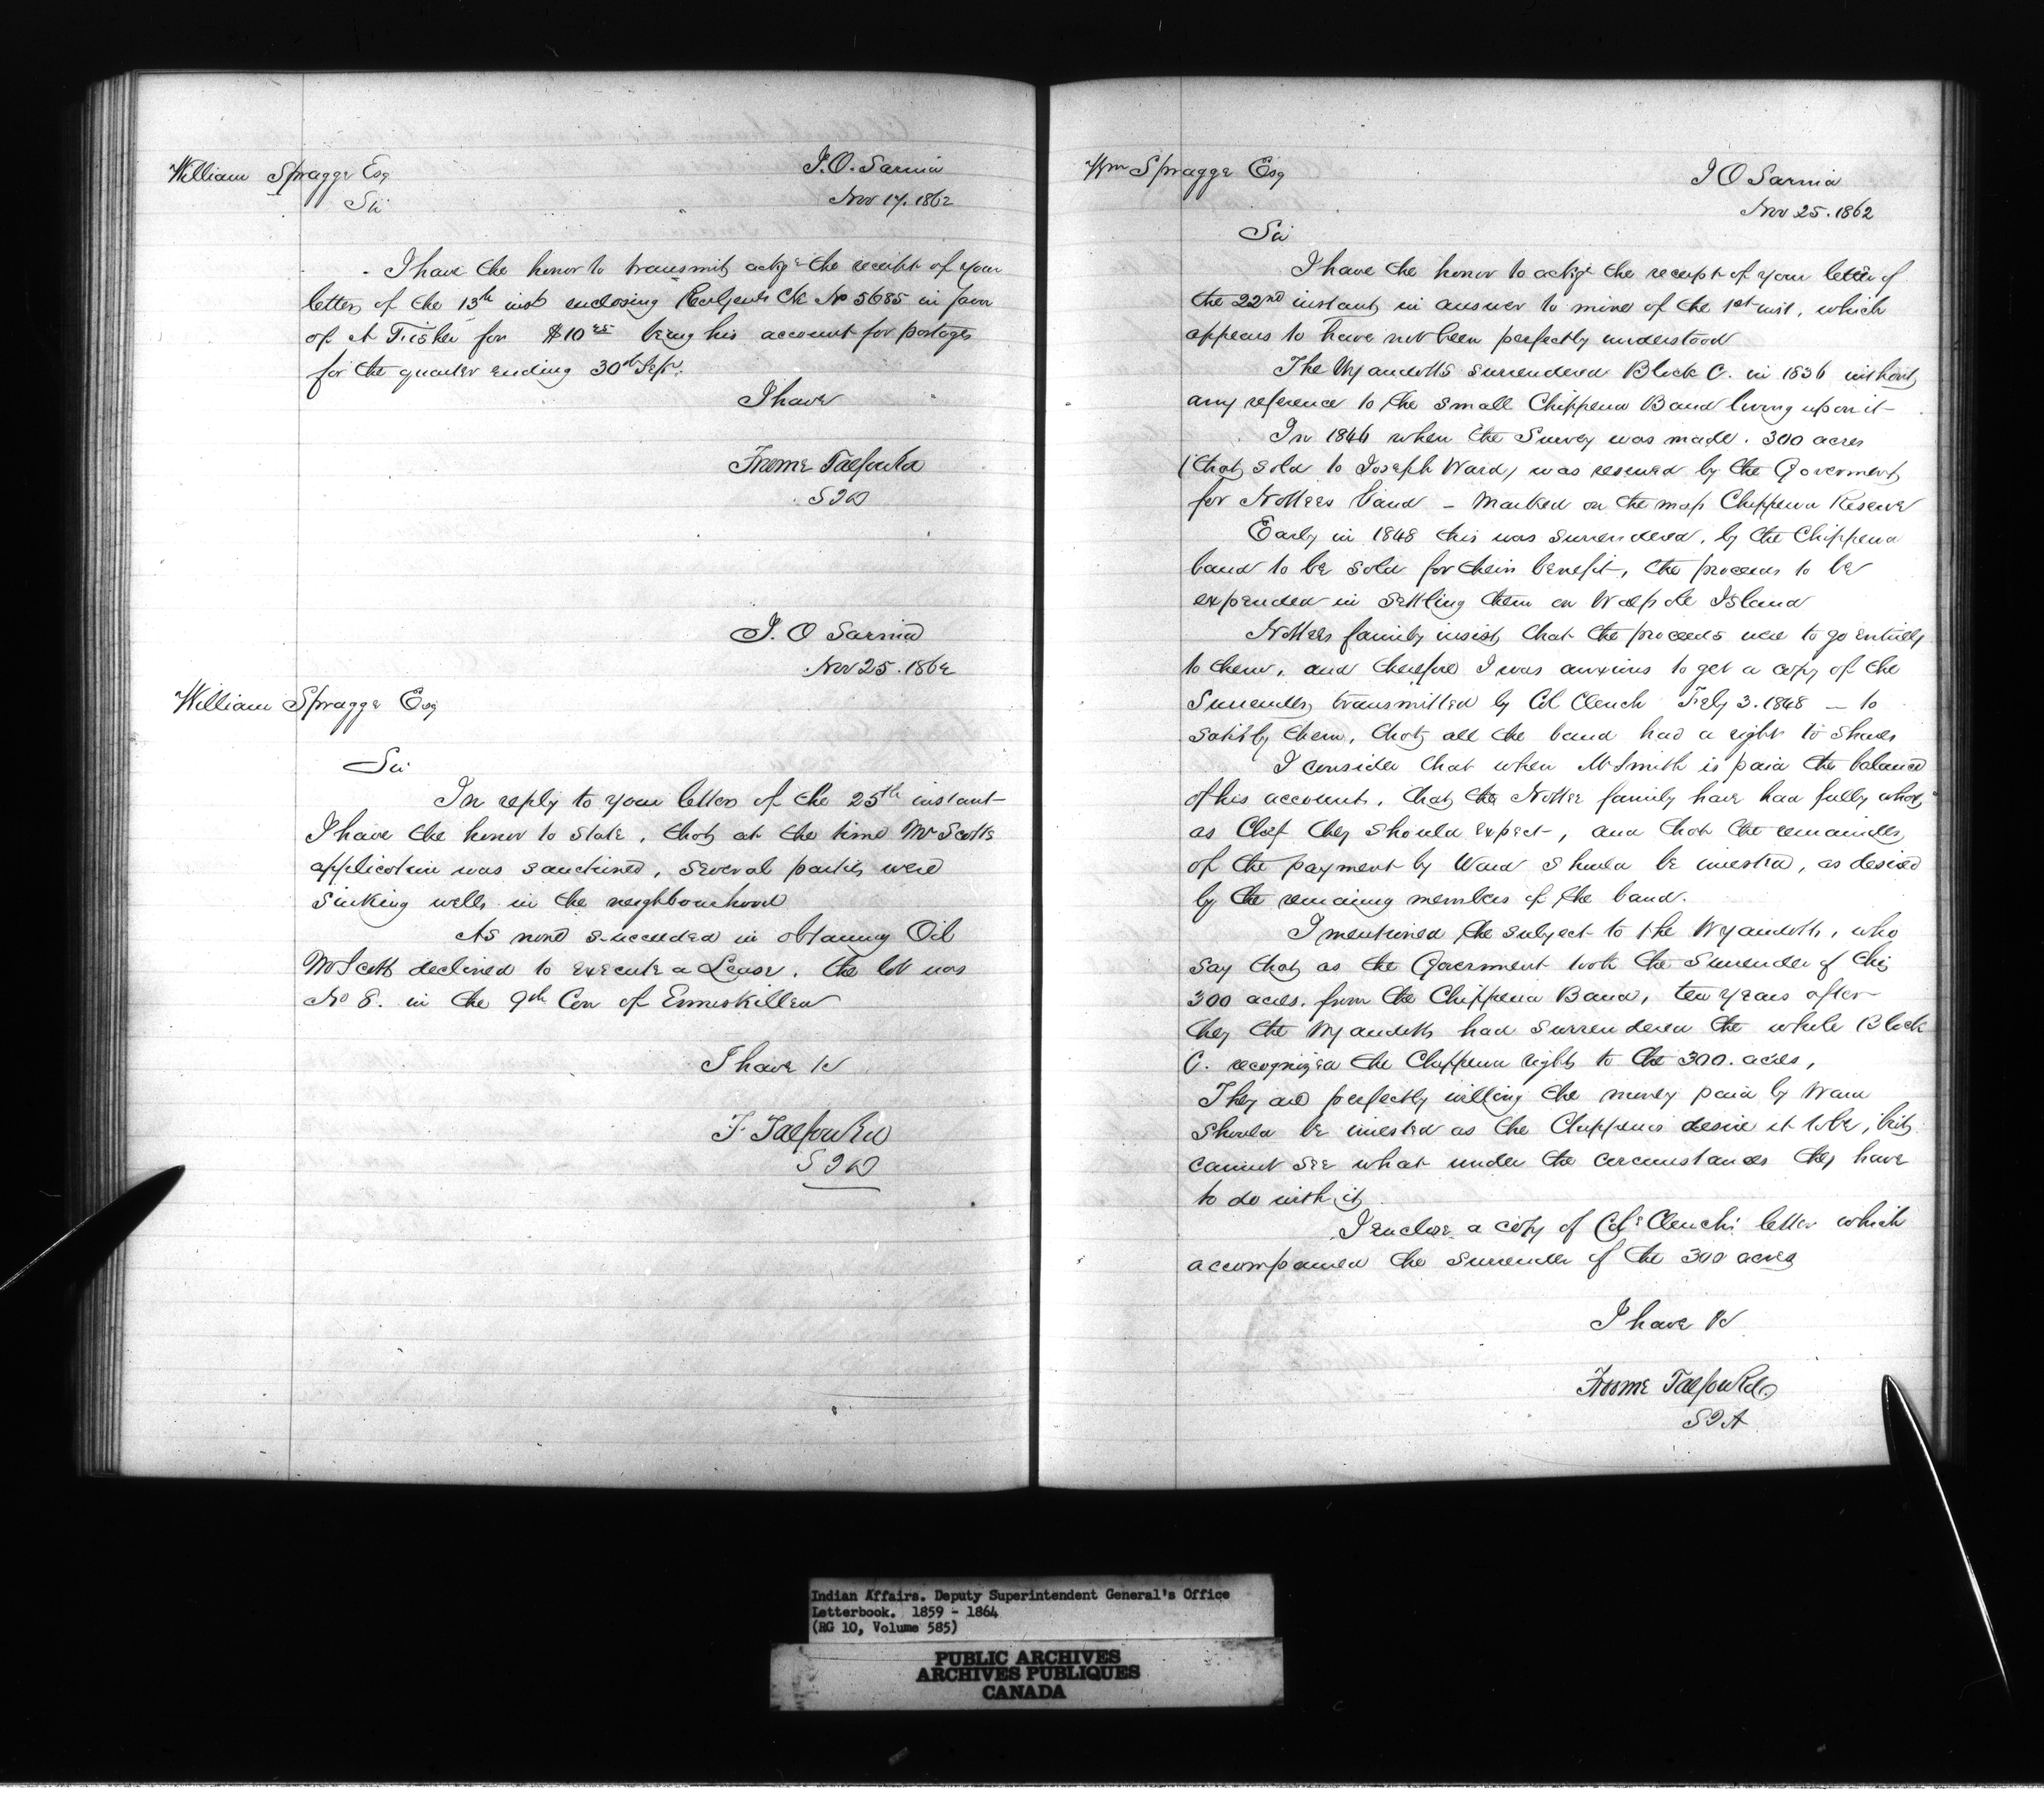 William Spragge Esq
I.O. Sarnia
Nov 17. 1862
Sir
I have the honor to transmit ackge the receipt of your
letter of the 13th inst enclosing Ck No 5685 in favor
of A Fisher for $10 being his account for postages
for the quarter ending 30th Sepr.
I have
Froome Talfourd
S I A
I. O Sarnia
Nov 25. 1862
William Spragge Esq
Sir
In reply to your letter of the 25th instant
I have the honor to state, that at the time Mr Scotts
application was sanctioned, several parties were
sinking wells in the neighbourhood
As none succeeded in obtaining Oil
Mr Scott declined to execute a Lease. The lot was
No 8. in the 9th Con of Enniskillen
I have &c
F Talfourd
S I A
Wm Spragge Esq
I O Sarnia
Nov 25. 1862
Sir
I have the honor to ackge the receipt of your letter of
the 22nd instant, in answer to mine of the 1st inst, which
appears to have not been perfectly understood
The Wyandotts surrendered Block C. in 1836 without
any reference to the small Chippewa Band living upon it
In 1846 when the Survey was made. 300 acres
(that sold to Joseph Ward) was reserved by the Goverment
for Nottees band - Marked on the map Chippewa Reserve
Early in 1848 this was surrendered, by the Chippewa
band to be sold for their benefit, the proceeds to be
expended in settling them on Walpole Island
Nottees family insist that the proceeds were to go entirely
to them, and therefore I was anxious to get a copy of the
Surrender, transmitted by Col Clench Feby 3. 1848 - to
satisfy them, that all the band had a right to shares
I consider that when Mr Smith is paid the balance
of his account, that the Nottee family have had fully what,
as Chief they should expect, and that the remainder
of the payment by Ward should be invested, as desired
by the remaing members of the band.
I mentioned the subject to the Wyandotts, who
say that as the Goverment took the Surrender of this
300 acres. from the Chippewa Band, ten years after
they the Wyandotts had surrendered the whole Block
C. recognized the Chippewa rights to the 300. acres,
They are perfectly willing the money paid by Ward
should be invested as the Chippewas desire it to be, but
cannot see what under the circumstances they have
to do with it
I enclose a copy of Col Clenchs letter which
accompanied the surrender of the 300 acres
I have &c
Froome Talfourd
S I A
Indian Affairs. Deputy Superintendent General's Office
Letterbook. 1859 - 1864
(RG 10, Volume 585)
PUBLIC ARCHIVES
ARCHIVES PUBLIQUES
CANADA